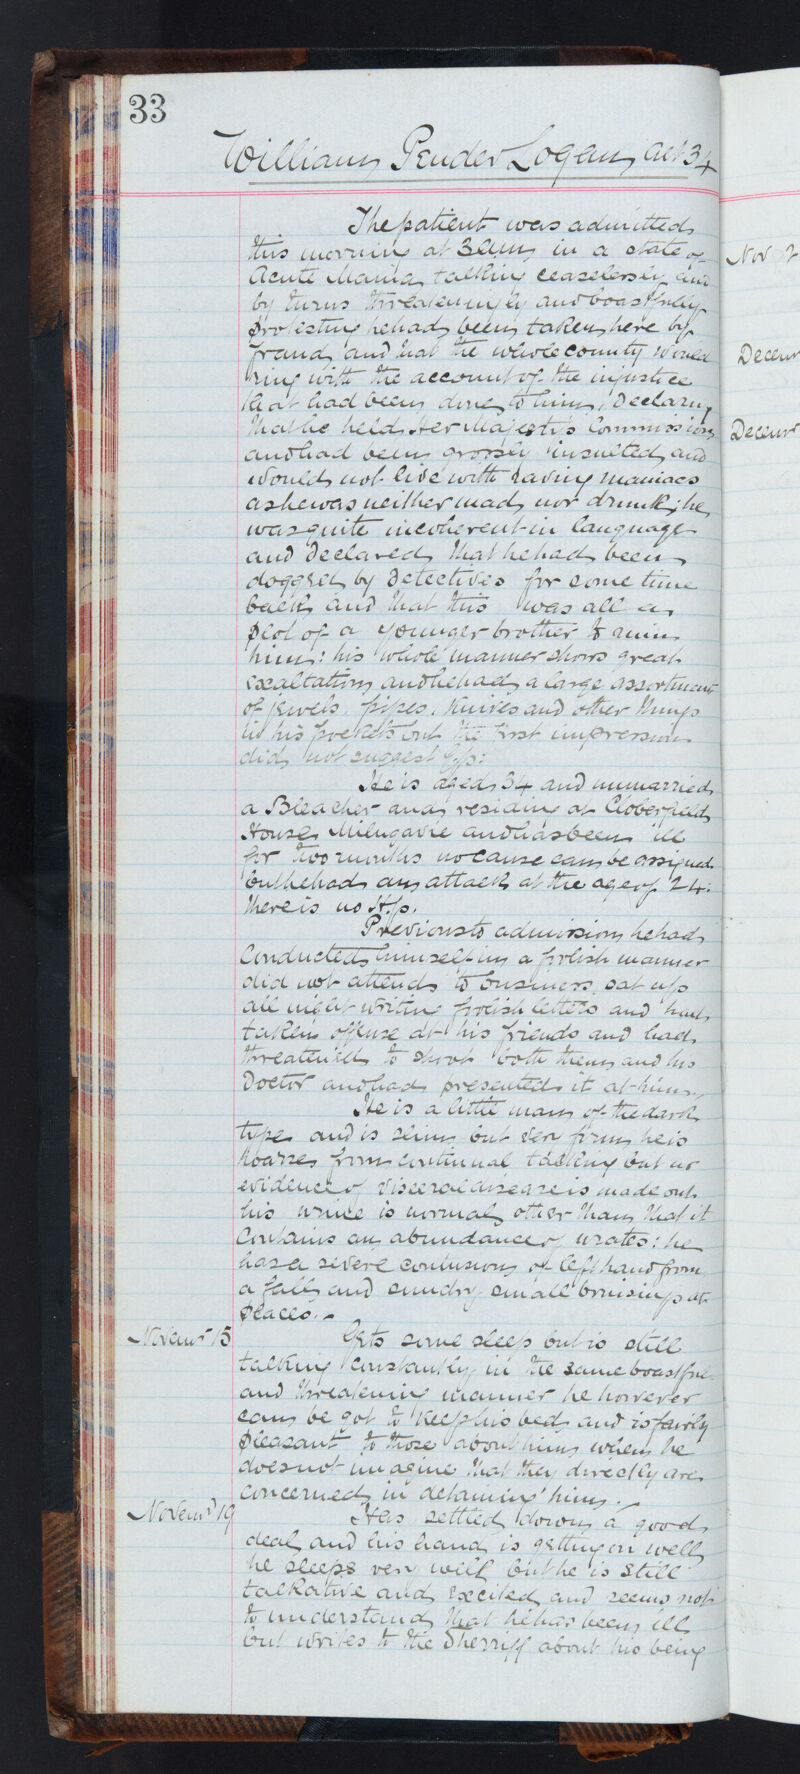 33
William Pender Logan, aet 34
The patient was admitted
this morning at 3am in a state of
Acute Mania talking ceaselessly and
by turns threateningly and boastfully
protesting he had been taken here by
fraud and that the whole county would
ring with the account of the injustice
that had been done to him, declaring
that he held Her Majestys Commission
and had been grossly insulted and
would not live with raving maniacs
as he was neither mad nor drunk; he
was quite incoherent in language
and declared that he had been
dogged by detectives for some time
back and that this was all a
plot of a younger brother to ruin
him: his whole manner shows great
exaltation and he had a large assortment
of jewels, pipes, knives and other things
in his pockets but the first impression
did not suggest G.p:
He is aged 34 and unmarried
a Bleacher and residing at Cloberfield
House Milngavie and has been ill
for two months no cause can be assigned
but he had an attack at the age of 24.
There is no H.p.
Previous to admission he had
conducted himself in a foolish manner
did not attend to business, sat up
all night writing foolish letters and had
taken offense at his friends and had
threatened to shoot both them and his
Doctor and had presented it at him.
He is a little man of the dark
type and is slim but very firm he is
hoarse from continual talking but no
evidence of visceral disease is made out
his urine is normal other than that it
contains an abundance of urates: he
has a severe contusion of left hand from
a fall and sundry small bruisings at
places.
Novemr 15 Gets some sleep but is still
talking constantly in the same boastful
and threatening manner he however
can be got to keep his bed and is fairly
pleasant to those about him when he
does not imagine that they directly are
concerned in detaining him.
Novemr 19 Has settled down a good
deal and his hand is getting on well
he sleeps very well but he is still
talkative and excited and seems not
to understand that he has been ill
but writes to the Sherriff about his being
Nov 2
Decem
Decem